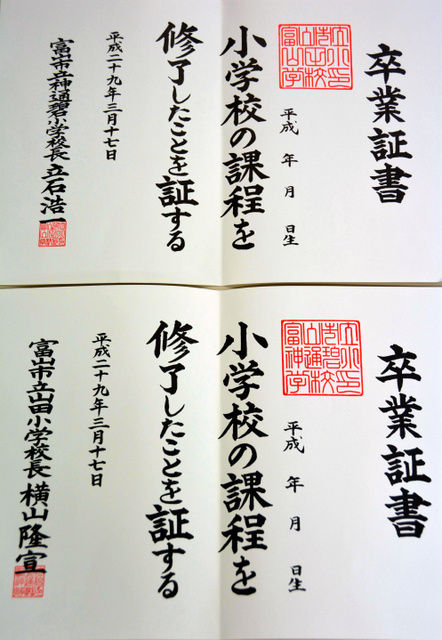 卒業証書
平成 年 月 日生
小学校の課程を
修了したことを証する
平成二十九年三月十七日
富山市立神通碧小学校長 立石浩一
卒業証書
平成 年 月 日生
小学校の課程を
修了したことを証する
平成二十九年三月十七日
富山市立山田小学校長 横山隆宣